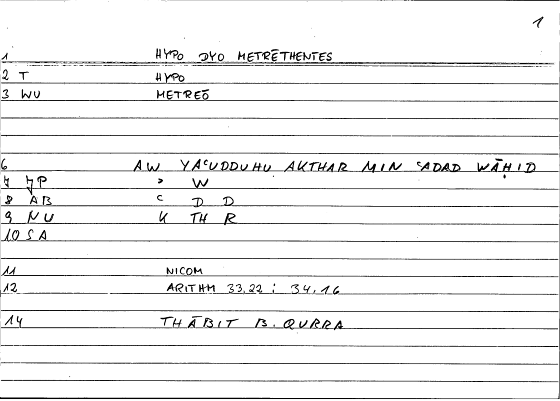 1
1 HYPO DYO METRĒTHENTES
2 T HYPO
3 WU METREŌ
6 AW YAʿUDDUHU AKTHAR MIN ʿADAD WĀḤID
7 JP ʾ W
8 AB ʿ D D
9 NU K TH R
10 SA
11 NICOM
12 ARITHM 33.22 : 34.16
14 THĀBIT B. QURRA